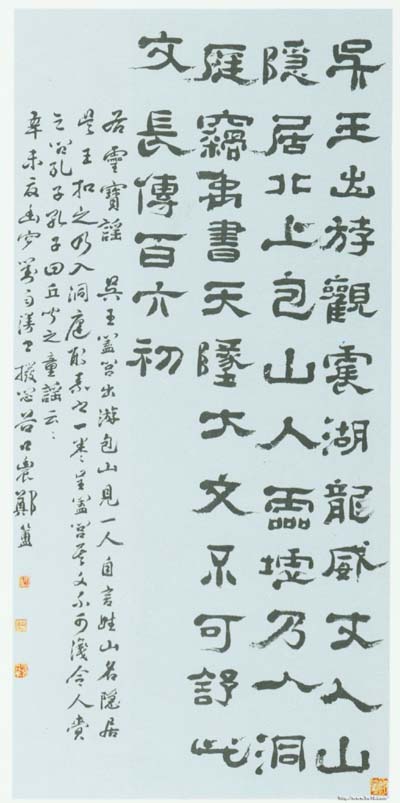 吳王出斿觀震湖龍威丈人山
隱居北上包山人靈墟乃入洞
庭竊禹書天墬大文不可舒此
文長傳百六初
右靈寶謠 吳王闔閭出游包山見一人自言姓山名隱居
吳王扣之乃入洞庭取素書一卷呈闔閭其文不可識令人賫
之問孔子孔子曰丘聞之童謠云云
辛未夏 谷口農鄭簠